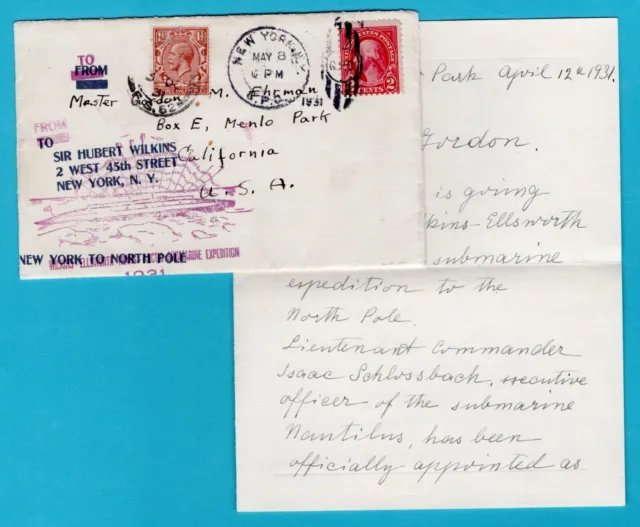 TO
FROM
Master Gordon M. Ehrman
Box E, Menlo Park
California
U. S. A.
NEW YORK, N.Y.
MAY 8
6 PM
1931
2 CENTS 2
FROM
TO
SIR HUBERT WILKINS
2 WEST 45th STREET
NEW YORK, N. Y.
NEW YORK TO NORTH POLE
EXPEDITION
1931
Park April 12th 1931.
Gordon.
is going
kins-Ellsworth
submarine
expedition to the
North Pole.
Lieutenant Commander
Isaac Schlossbach, executive
officer of the submarine
Nautilus, has been
officially appointed as